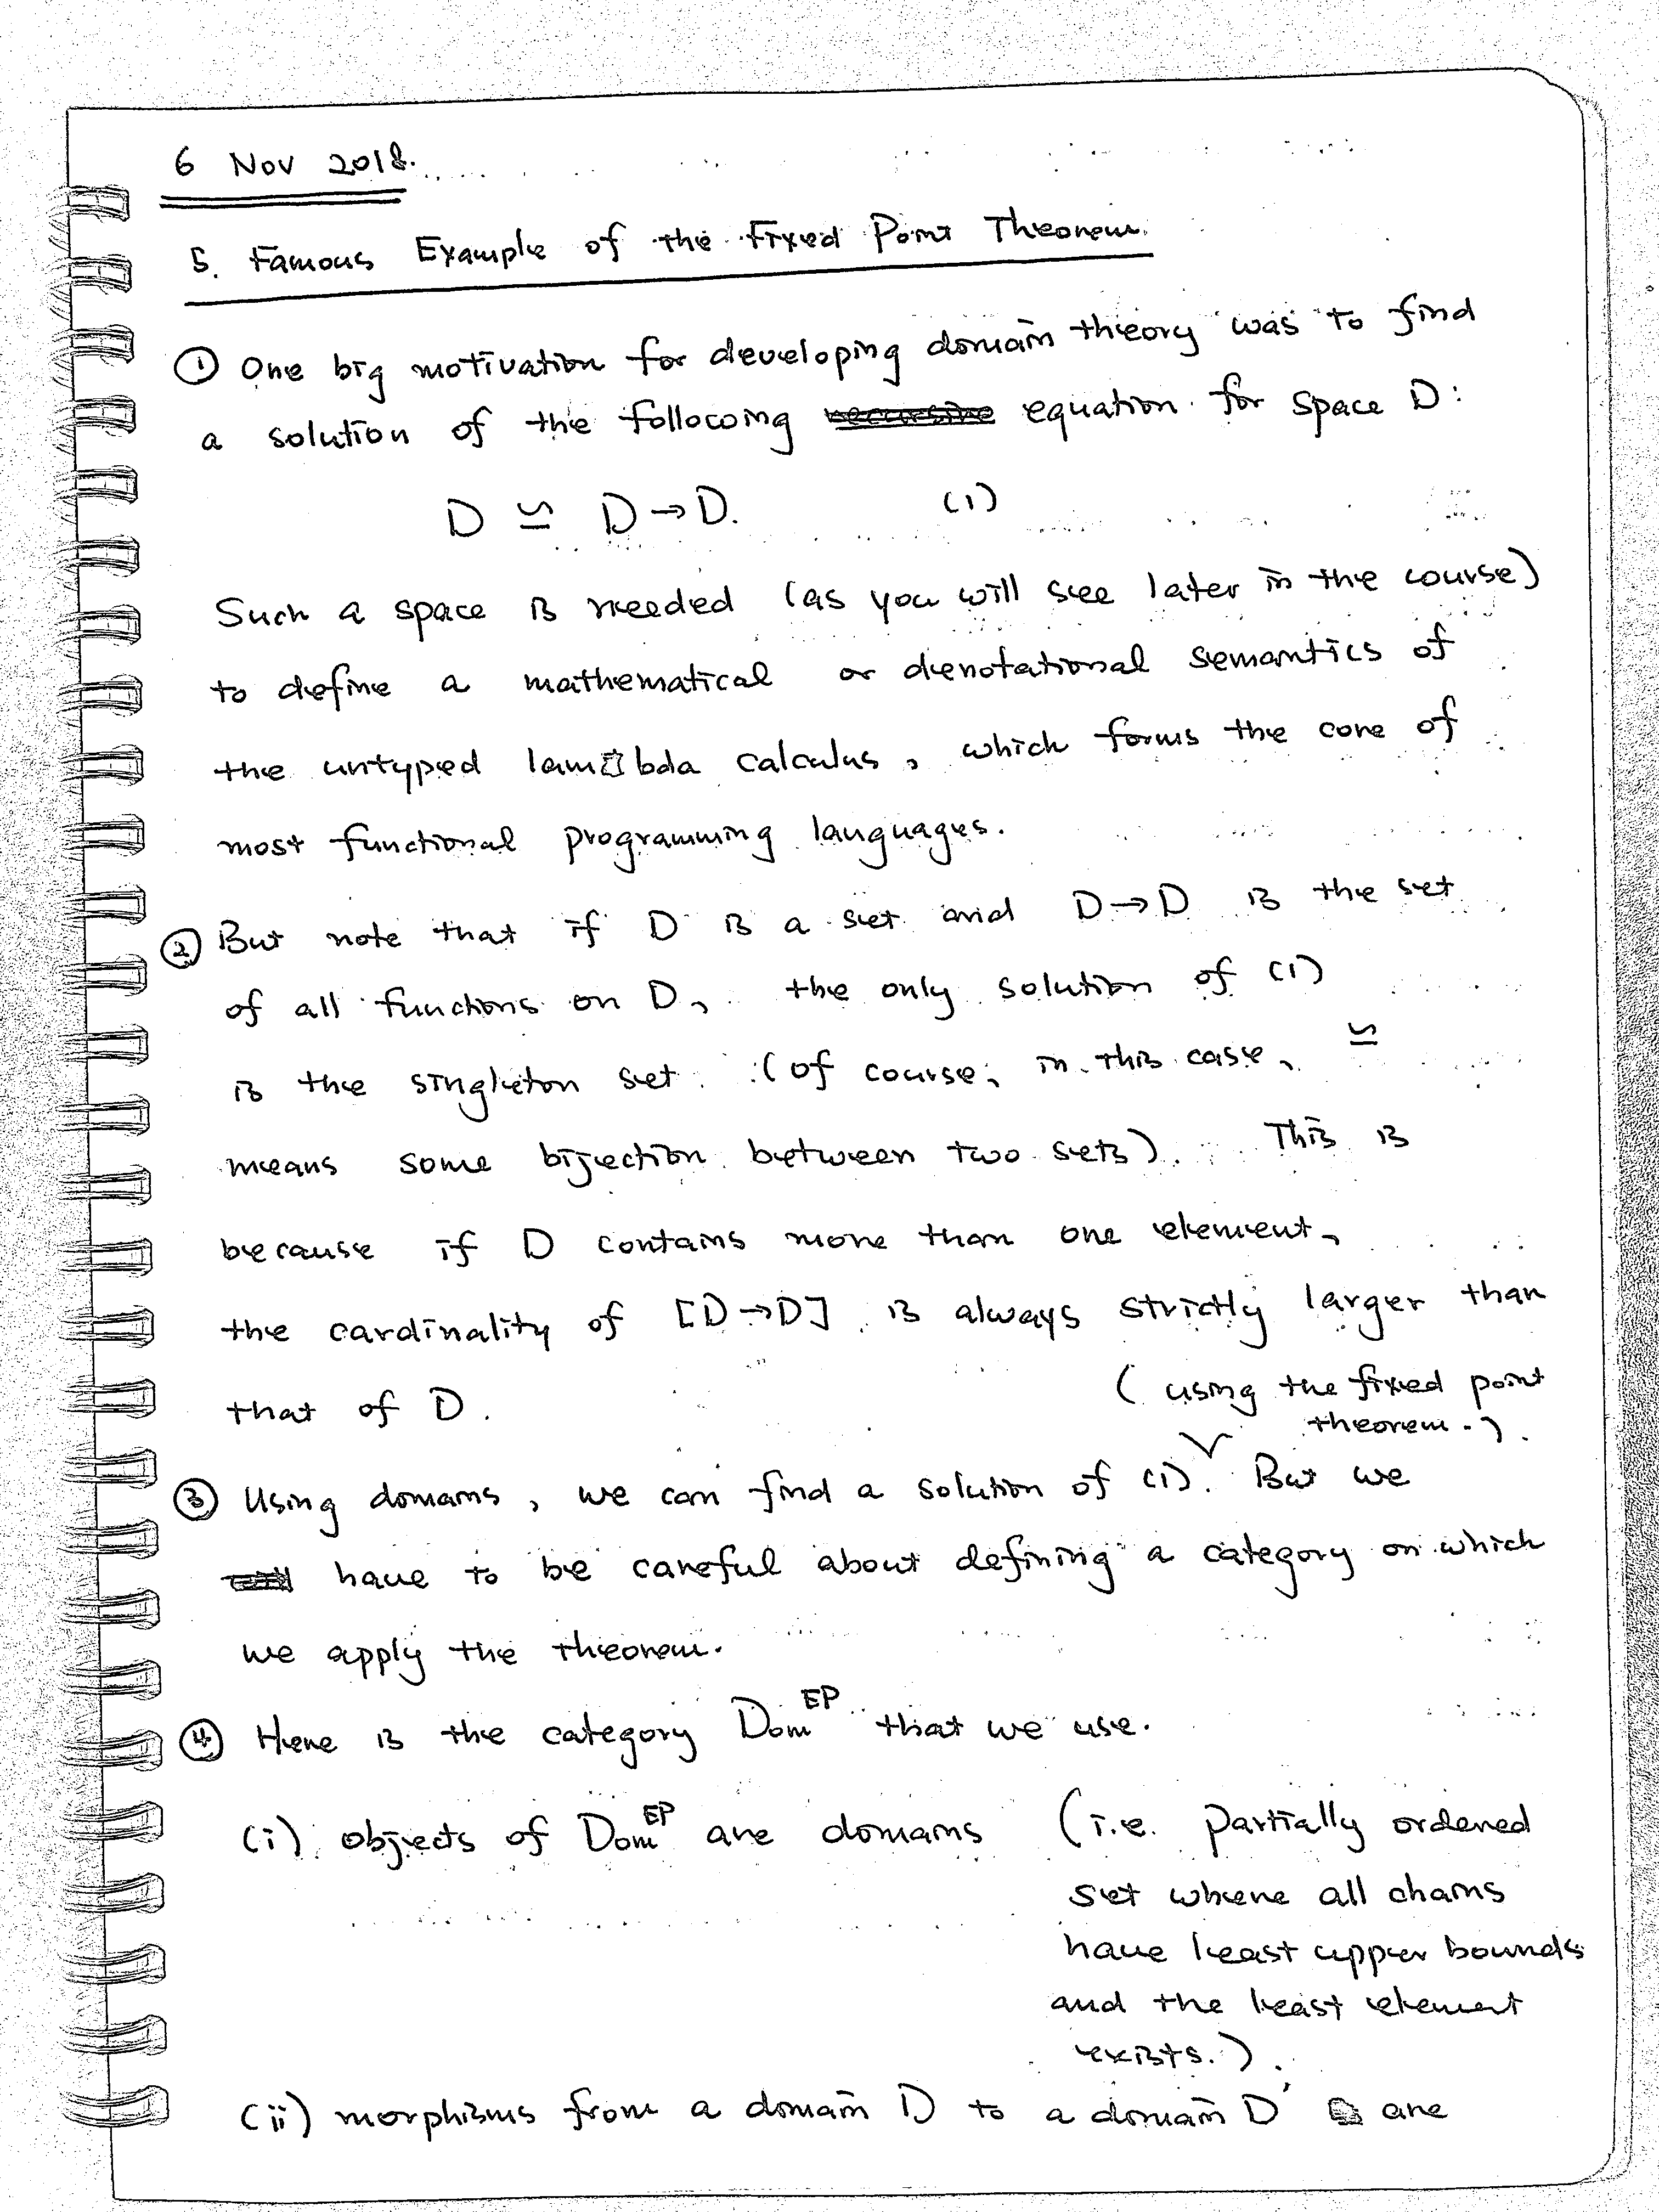 6 Nov 2018.
5. Famous Example of the Fixed Point Theorem.
① One big motivation for developing domain theory was to find
a solution of the following recursive equation for space D:
D ≅ D→D. (1)
Such a space is needed (as you will see later in the course)
to define a mathematical or denotational semantics of
the untyped lambda calculus, which forms the core of
most functional programming languages.
② But note that if D is a set and D→D is the set
of all functions on D, the only solution of (1)
is the singleton set. (of course, in this case, ≅
means some bijection between two sets). This is
because if D contains more than one element,
the cardinality of [D→D] is always strictly larger than
that of D.
(using the fixed point
theorem.).
③ Using domains, we can find a solution of (1). But we
have to be careful about defining a category on which
we apply the theorem.
④ Here is the category Dom^EP that we use.
(i) objects of Dom^EP are domains (i.e. partially ordered
set where all chains
have least upper bounds
and the least element
exists.).
(ii) morphisms from a domain D to a domain D' are